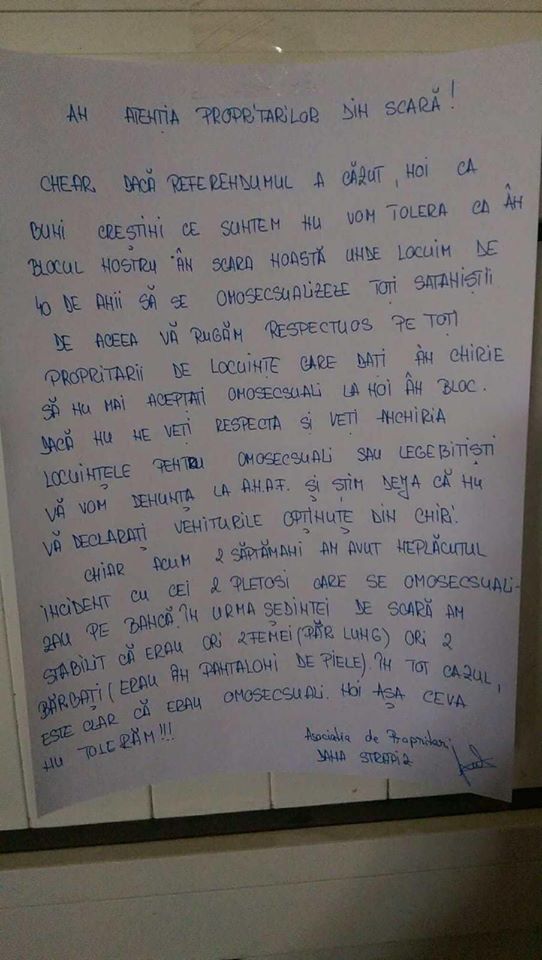 AN ATENȚIA PROPRITARILOR DIN SCARĂ!
CHEAR DACĂ REFERENDUMUL A CĂZUT, NOI CA
BUNI CREȘTINI CE SUNTEM NU VOM TOLERA CA ÂN
BLOCUL NOSTRU ÂN SCARA NOASTĂ UNDE LOCUIM DE
40 DE ANII SĂ SE OMOSECSUALIZEZE TOȚI SATANIȘTII
DE ACEEA VĂ RUGĂM RESPECTUOS PE TOȚI
PROPRITARII DE LOCUINȚE CARE DATI ÂN CHIRIE
SĂ NU MAI ACEPTATI OMOSECSUALI LA NOI ÂN BLOC.
DACĂ NU NE VEȚI RESPECTA SI VEȚI ANCHIRIA
LOCUINȚELE PENTRU OMOSECSUALI SAU LEGEBITIȘTI
VĂ VOM DENUNȚA LA A.N.A.F. ȘI ȘTIM DEJA CĂ NU
VĂ DECLARAȚI VENITURILE OPȚINUTE DIN CHIRI.
CHIAR ACUM 2 SĂPTĂMANI AM AVUT NEPLĂCUTUL
INCIDENT CU CEI 2 PLETOSI CARE SE OMOSECSUALI-
ZAU PE BANCĂ. ÎN URMA ȘEDINTEI DE SCARĂ AM
STABILIT CĂ ERAU ORI 2 FEMEI (PĂR LUNG) ORI 2
BĂRBAȚI (ERAU ÂN PANTALONI DE PIELE). ÎN TOT CAZUL,
ESTE CLAR CĂ ERAU OMOSECSUALI. NOI AȘA CEVA
NU TOLERĂM!!!
Asociatia de Propritari
DANA STRAPAZ